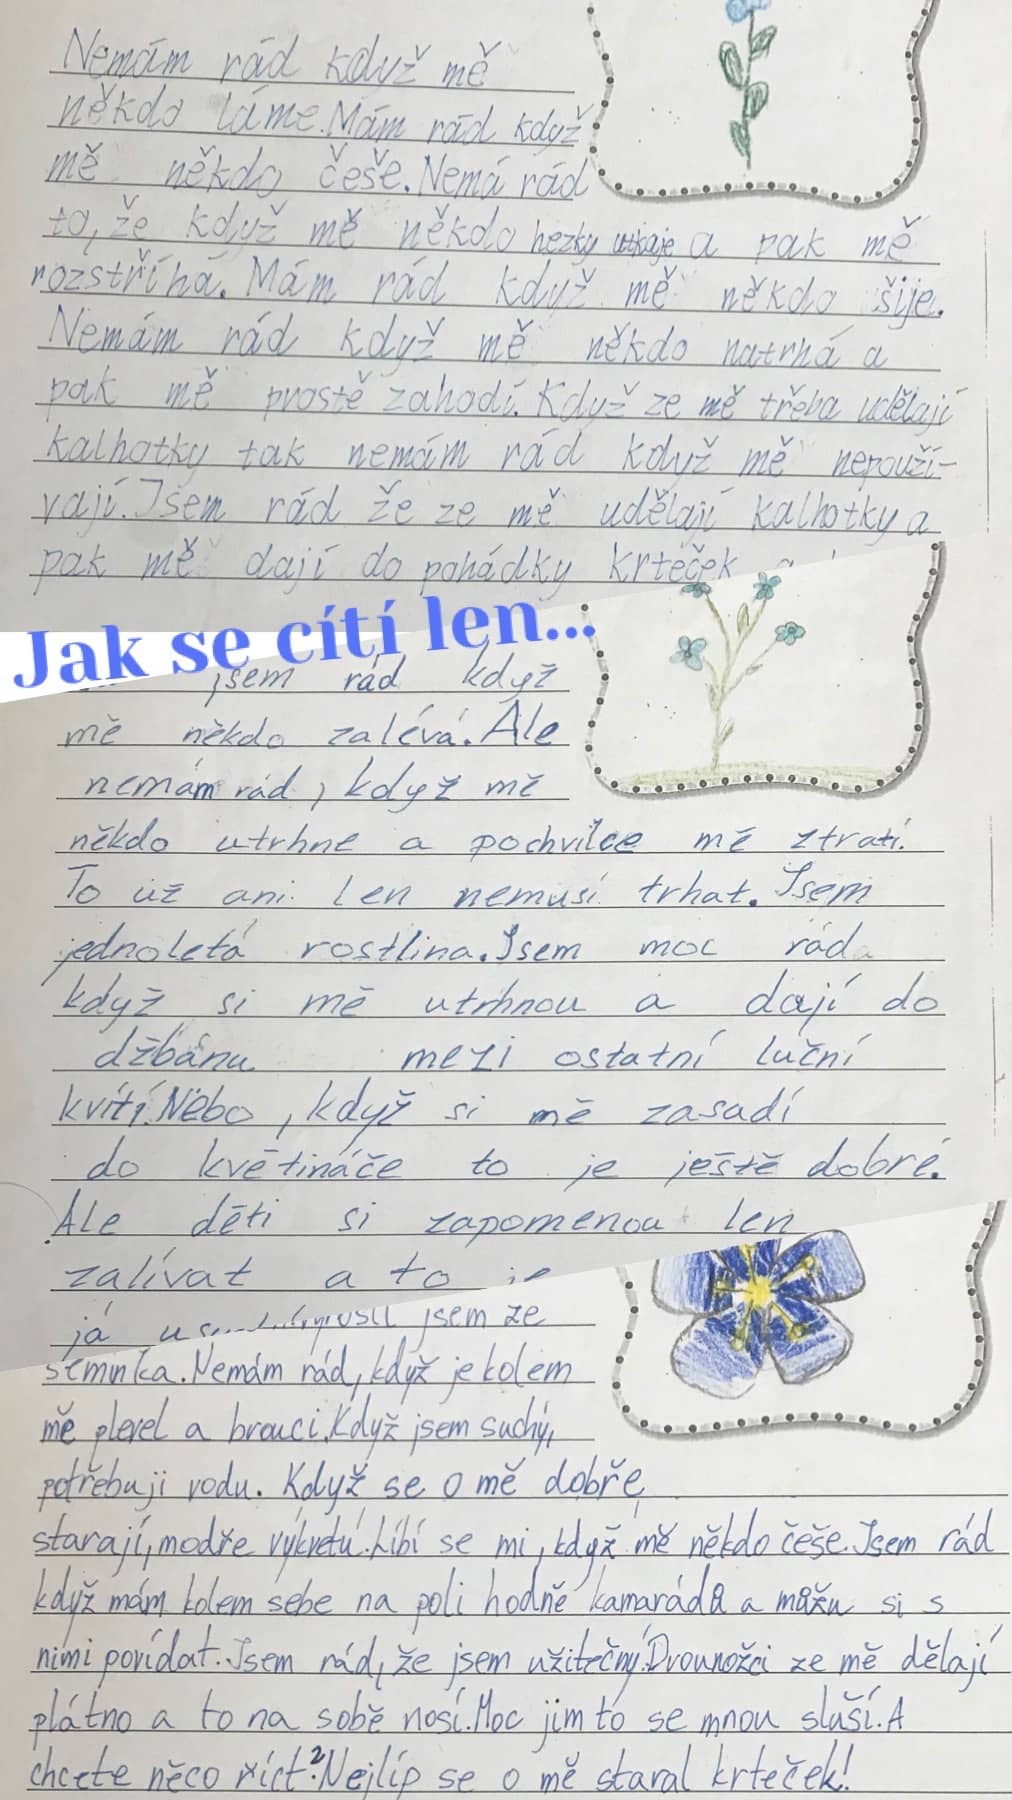 Nemám rád když mě
někdo láme. Mám rád když
mě někdo češe. Nemá rád
to, že když mě někdo hezky utkaje a pak mě
rozstříhá. Mám rád když mě někdo šije.
Nemám rád když mě někdo natrhá a
pak mě prostě zahodí. Když ze mě třeba udělají
kalhotky tak nemám rád když mě nepouží-
vají. Jsem rád že ze mě udělají kalhotky a
pak mě dají do pohádky krteček
Jak se cítí len...
jsem rád když
mě někdo zalévá. Ale
nemám rád, když mě
někdo utrhne a pochvilce mě ztratí.
To už ani len nemusí trhat. Jsem
jednoletá rostlina. Jsem moc ráda
když si mě utrhnou a dají do
džbánu mezi ostatní luční
kvítí. Nebo, když si mě zasadí
do květináče to je ještě dobré.
Ale děti si zapomenou len
zalívat a to je
já
jsem ze
semínka. Nemám rád, když je kolem
mě plevel a brouci. Když jsem suchý,
potřebuji vodu. Když se o mě dobře
starají, modře vykvetu. Líbí se mi, když mě někdo češe. Jsem rád
když mám kolem sebe na poli hodně kamarádů a můžu si s
nimi povídat. Jsem rád, že jsem užitečný. Dvounožci ze mě dělají
plátno a to na sobě nosí. Moc jim to se mnou sluší. A
chcete něco říct? Nejlíp se o mě staral krteček!